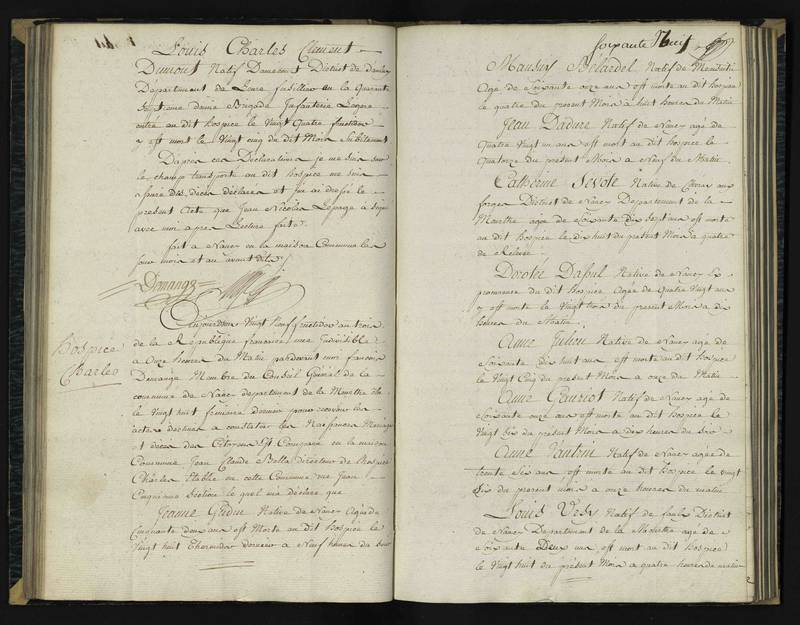 Louis Charles Clement
Dumont Natif District de
Departement de Leure fusillier en la Quarante
Septieme demie Brigade Infanterie Legere
entré au dit hospice le Vingt Quatre fructidor
y est mort le Vingt cinq du dit Mois Subitement
Dapres ces Declarations je me suis sur
le champ transporté au dit hospice me suis
assuré des decès declarés et jai dressé le
present Acte que Jean Nicolas Lepage à signé
avec moi apres Lecture faite
fait à Nancy en la maison Commune les
jour mois et an avant dits
Demange
Hospice
Charles
Aujourdhui Vingt Neuf fructidor an trois
de la Republique francaise une Indivisible
a Onze heures du Matin pardevant moi francois
Demange Membre du Conseil General de la
commune de Nancy departement de la Meurthe élu
le Vingt huit frimaire dernier pour recevoir les
actes destinés a constater les Naissances Mariages
et decès des Citoyens Est Comparu en la maison
Commune Jean Claude Bella directeur de lhospice
Charles établie en cette Commune rue Jean
Cinquieme Section le quel ma declaré que
Jeanne Native de Nancy Agée de
Cinquante deux ans est Morte au Dit hospice le
Vingt huit Thermidor dernier a Neuf heures du soir
soixante Huit
Mansuy Belardel Natif de
Age de Soixante onze ans est morte au dit hospice
le quatre du present Mois a huit heures du Matin
Jean Dadure Natif de Nancy agé de
Quatre Vingt un ans est Mort au dit hospice le
Quatorze du present Mois a Neuf du Matin
Catherine Native de aux
forges District de Nancy Departement de la
Meurthe age de Soixante Dix Sept ans est morte
au dit hospice le dix huit du present Mois a quatre
de Relevée
Dorothé Native de Nancy
du dit hospice Agée de Quatre Vingt ans
y est morte le Vingt trois du present Mois a dix
heures du Matin
Anne Julien Native de Nancy agé de
Soixante dix huit ans est morte au dit hospice
le Vingt Cinq du present Mois a onze du Matin
Anne Gauriot Natif de Nancy agée de
Soixante onze ans est morte au dit hospice le
Vingt Six du present Mois a dix heures du soir
Anne Natif de Nancy agée de
trente Six ans est morte au dit hospice le vingt
Six du present mois a onze heures du matin
Louis Natif de District
de Nancy Departement de la Meurthe age de
Soixante Deux ans est mort au dit hospice
le Vingt huit du présent Mois a quatre heures du matin